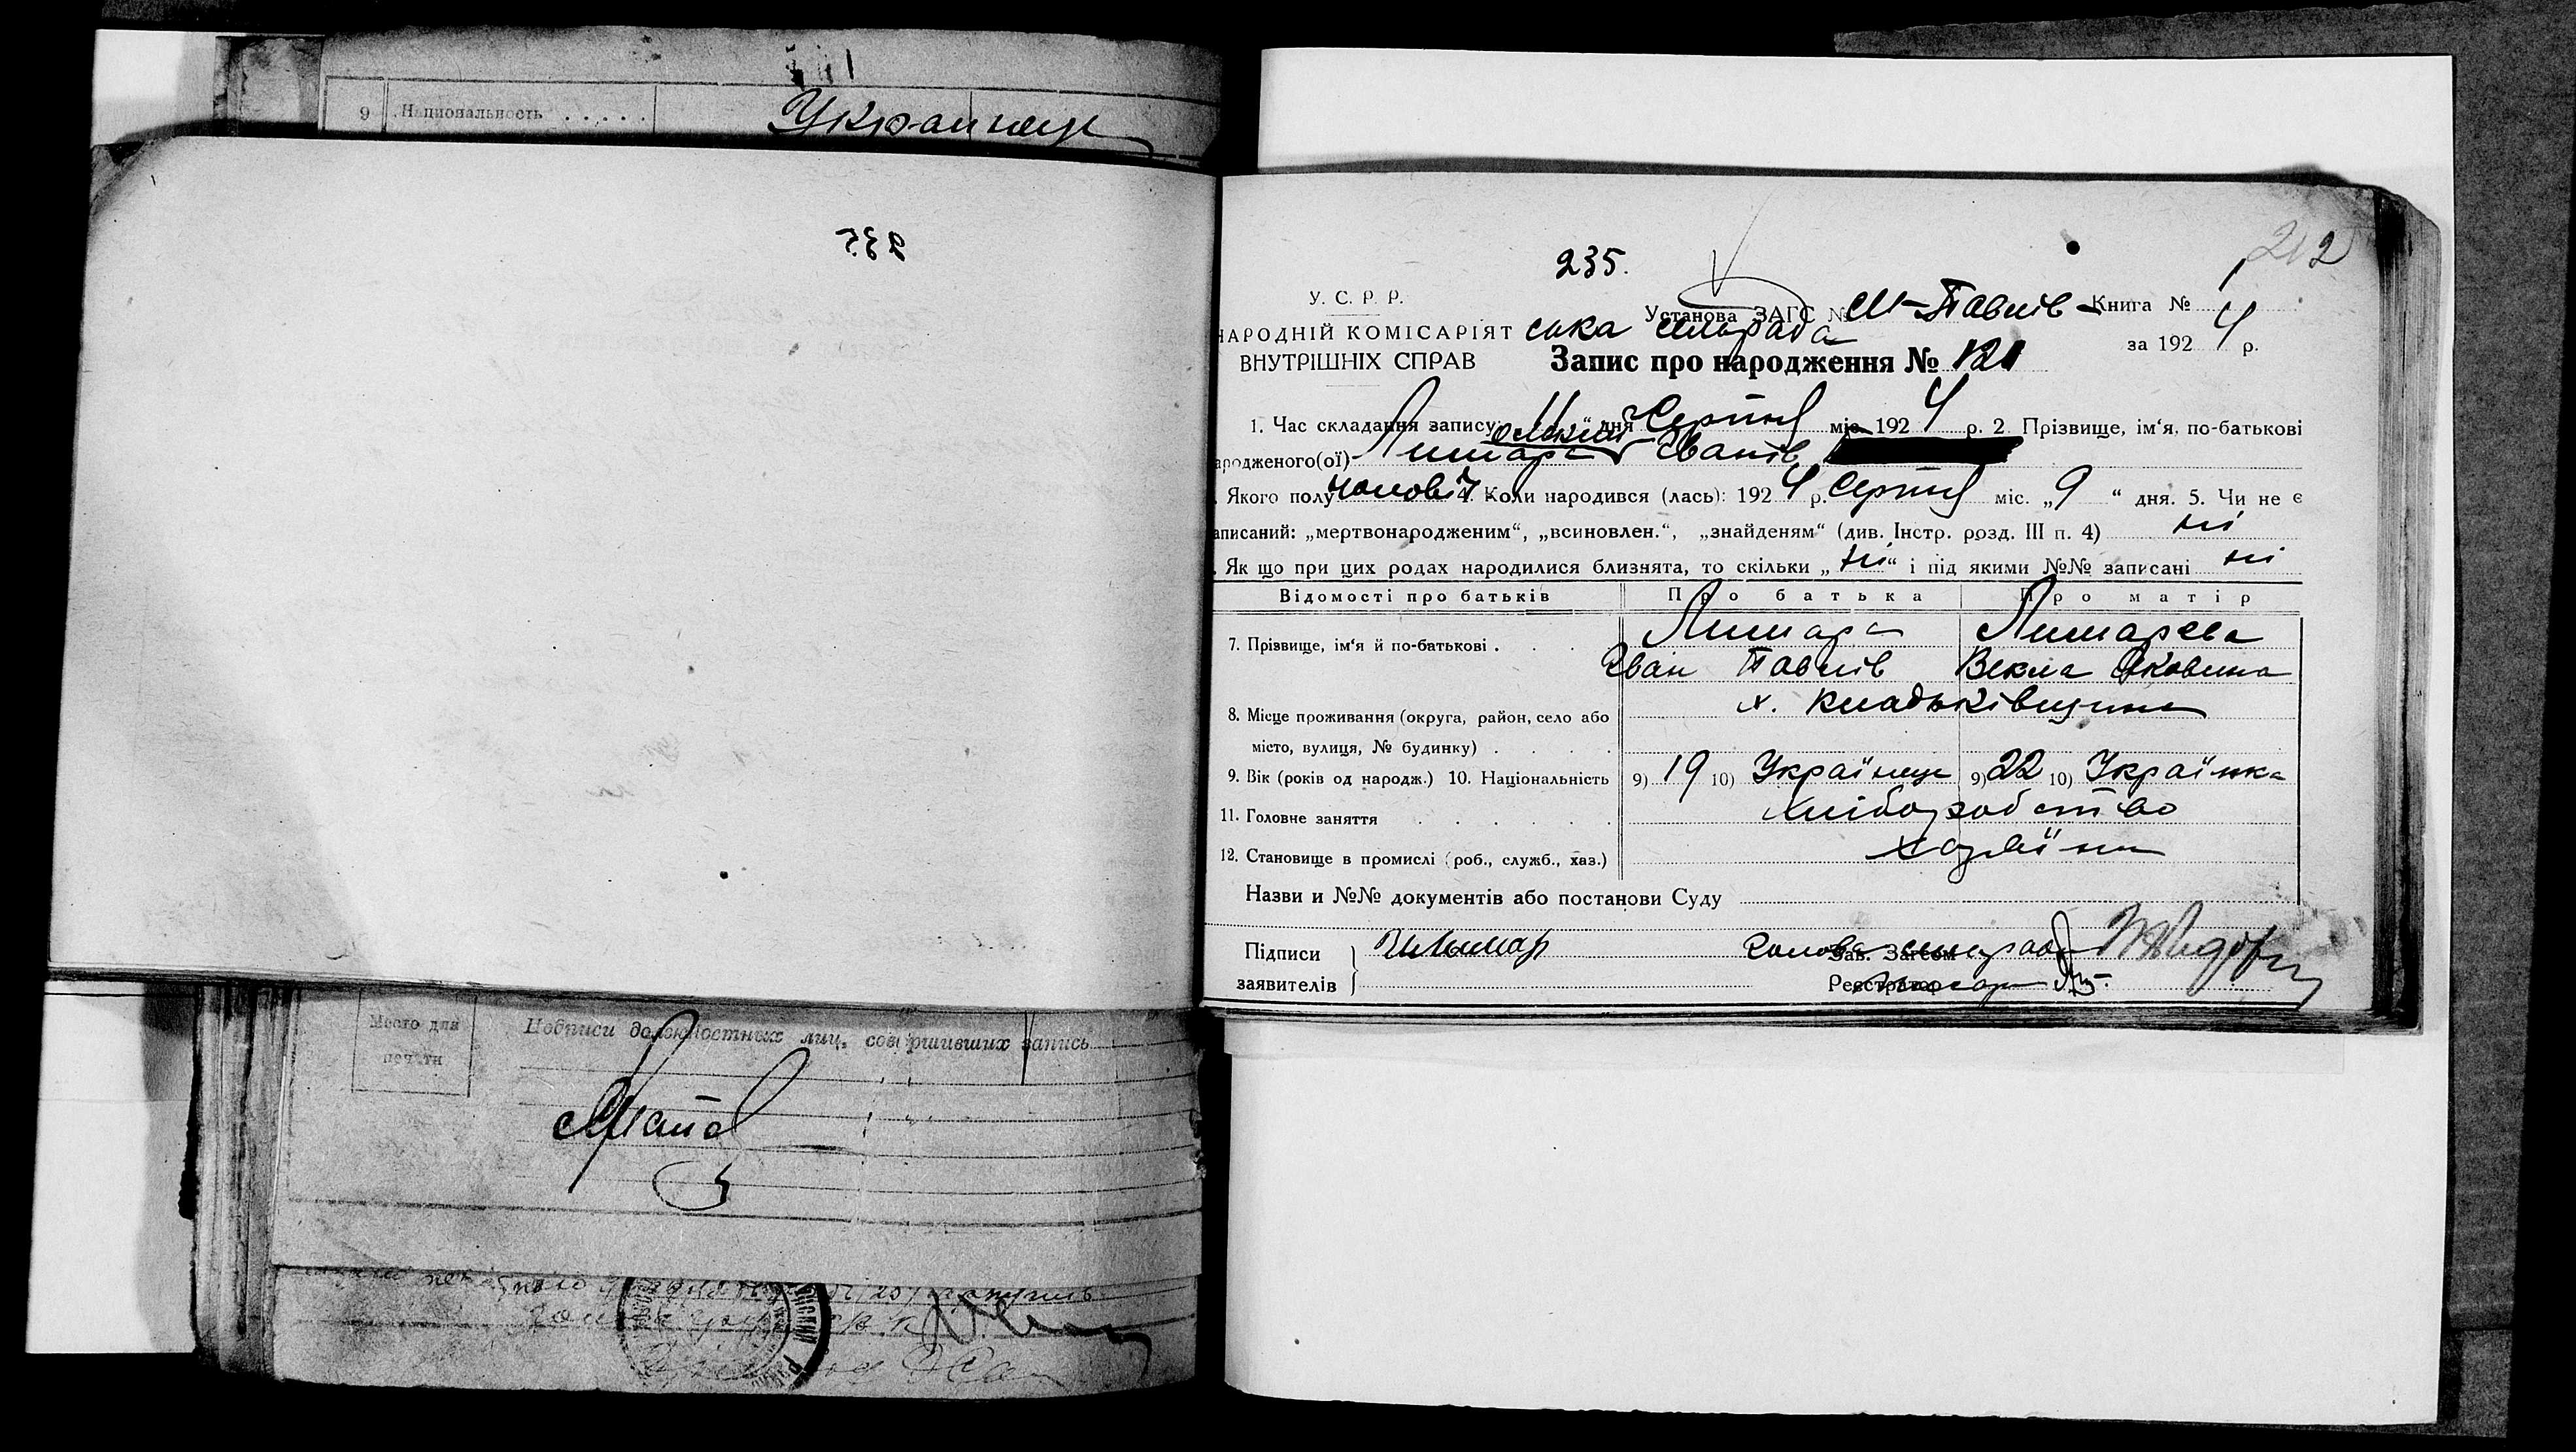 9 Национальность . . . . . Украинец
235.
235.
212
У. С. Р. Р.
Установа ЗАГС № М-Павлів-
Книга № 1
НАРОДНІЙ КОМІСАРІЯТ
ська сільрада
за 1924 р.
ВНУТРІШНІХ СПРАВ
Запис про народження № 121
1. Час складання запису „11“ дня Серпня міс. 1924 р. 2. Прізвище, ім‘я, по-батькові
ародженого(ої) Лимар Іванів
. Якого полу чоловіч 4. Коли народився (лась): 1924 р. Серпня міс. „9“ дня. 5. Чи не є
аписаний: „мертвонародженим“, „всиновлен.“, „знайденям“ (див. Інстр. розд. III п. 4) ні
. Як що при цих родах народилися близнята, то скільки „ні“ і під якими №№ записані ні
Відомості про батьків Про батька Про матір
7. Прізвище, ім‘я й по-батькові . . . Лимарь Лимарева
Іван Павлів Векла Яковина
8. Місце проживання (округа, район, село або х. Кладьківщина
місто, вулиця, № будинку) . . . .
9. Вік (років од народж.) 10. Національність 9) 19 10) Українець 9) 22 10) Українка
11. Головне заняття . . . . . . Хліборобство
12. Становище в промислі (роб., служб., хаз.) Хазяїни
Назви и №№ документів або постанови Суду
Підписи Голова сільради
Зав. Загсом
заявителів Реєстратор
Место для печати
Подписи должностных лиц, совершивших запись